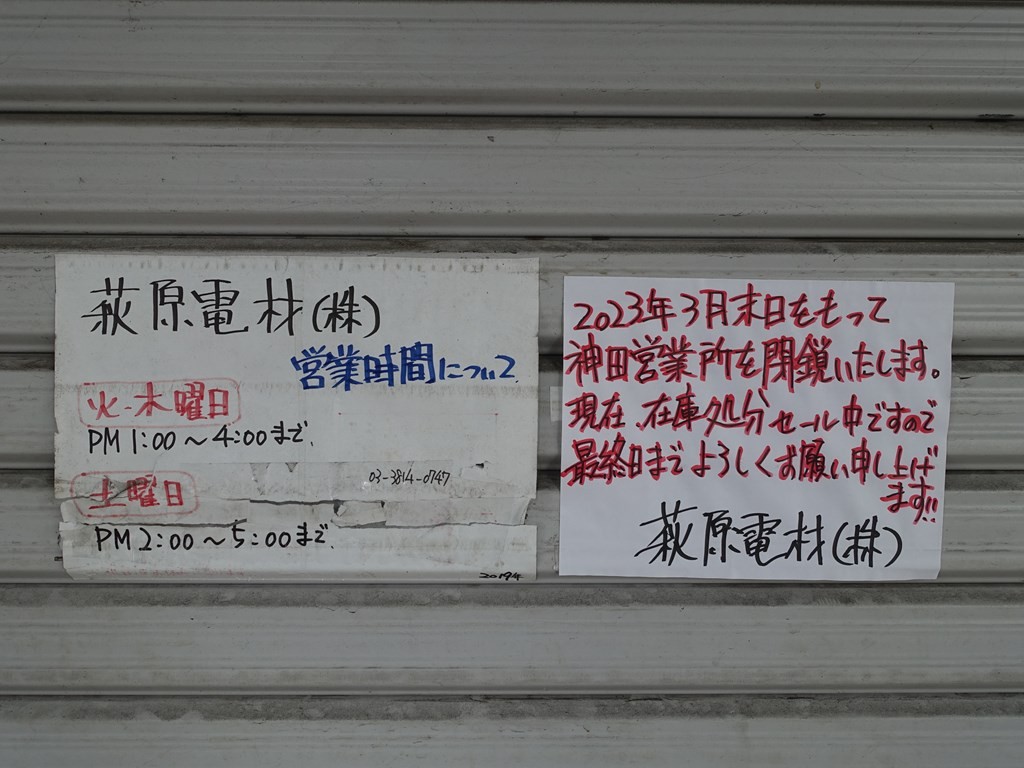 萩原電材(株)
営業時間について
火・木曜日
PM 1:00～4:00まで.
03-3814-0747
土曜日
PM 2:00～5:00まで.
2019年
2023年3月末日をもって
神田営業所を閉鎖いたします。
現在、在庫処分セール中ですので
最終日までよろしくお願い申し上げ
ます!!
萩原電材(株)